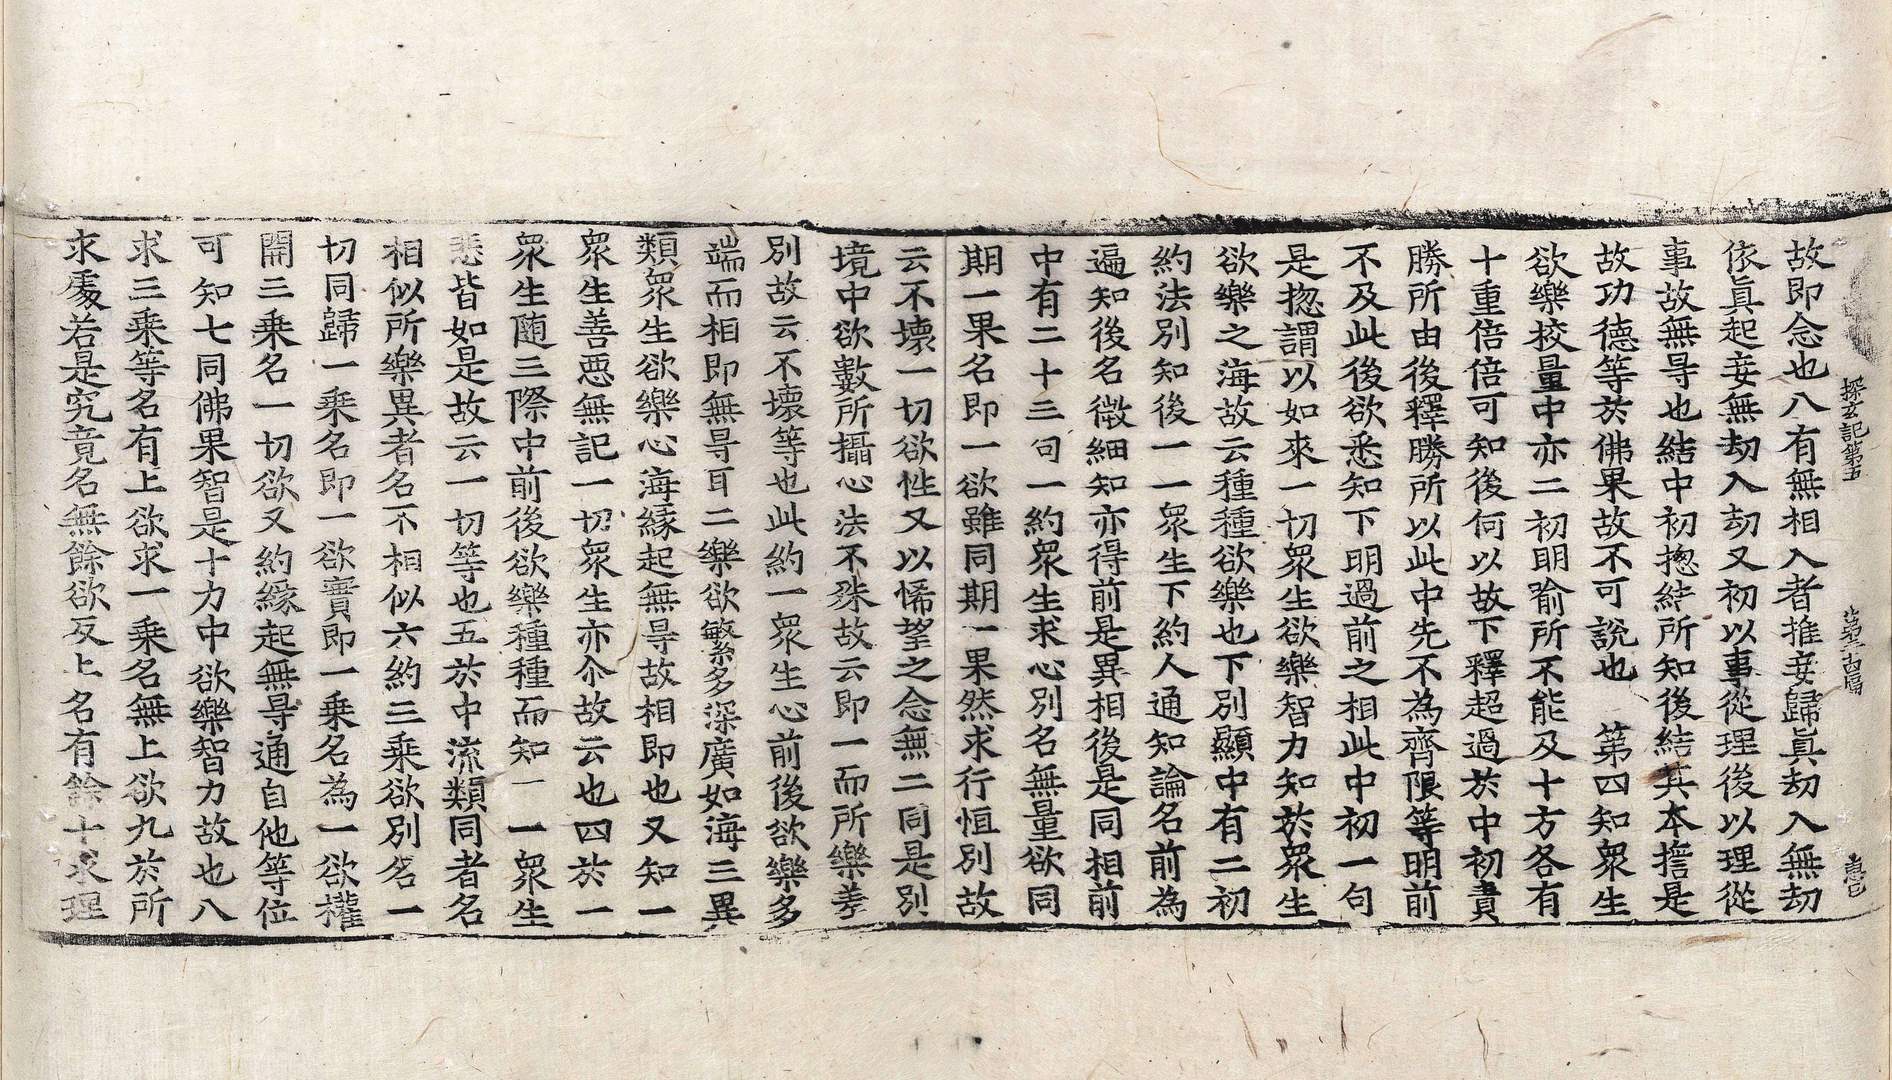 探玄記第五
故即念也八有無相入者推妄歸眞劫入無劫
依眞起妄無劫入劫又初以事從理後以理從
事故無㝵也結中初揔結所知後結其本擔是
故功德等於佛果故不可說也　第四知衆生
欲樂挍量中亦二初明喻所不能及十方各有
十重倍倍可知後何以故下釋超過於中初責
勝所由後釋勝所以此中先不為齊限等明前
不及此後欲悉知下明過前之相此中初一句
是揔謂以如來一切衆生欲樂智力知於衆生
欲樂之海故云種種欲樂也下別顯中有二初
約法別知後一一衆生下約人通知論名前為
遍知後名微細知亦得前是異相後是同相前
中有二十三句一約衆生求心別名無量欲同
期一果名即一欲雖同期一果然求行恒別故
云不壞一切欲性又以悕望之念無二同是別
境中欲數所攝心法不殊故云即一而所樂差
別故云不壞等也此約一衆生心前後欲樂多
端而相即無㝵耳二樂欲繁多深廣如海三異
類衆生欲樂心海緣起無㝵故相即也又知一
衆生善惡無記一切衆生亦尒故云也四於一
衆生随三際中前後欲樂種種而知一一衆生
悉皆如是故云一切等也五於中流類同者名
相似所樂異者名不相似六約三乘欲別名一
切同歸一乘名即一欲實即一乘名為一欲權
開三乘名一切欲又約緣起無㝵通自他等位
可知七同佛果智是十力中欲樂智力故也八
求三乘等名有上欲求一乘名無上欲九於所
求處若是究竟名無餘欲反上名有餘十求理